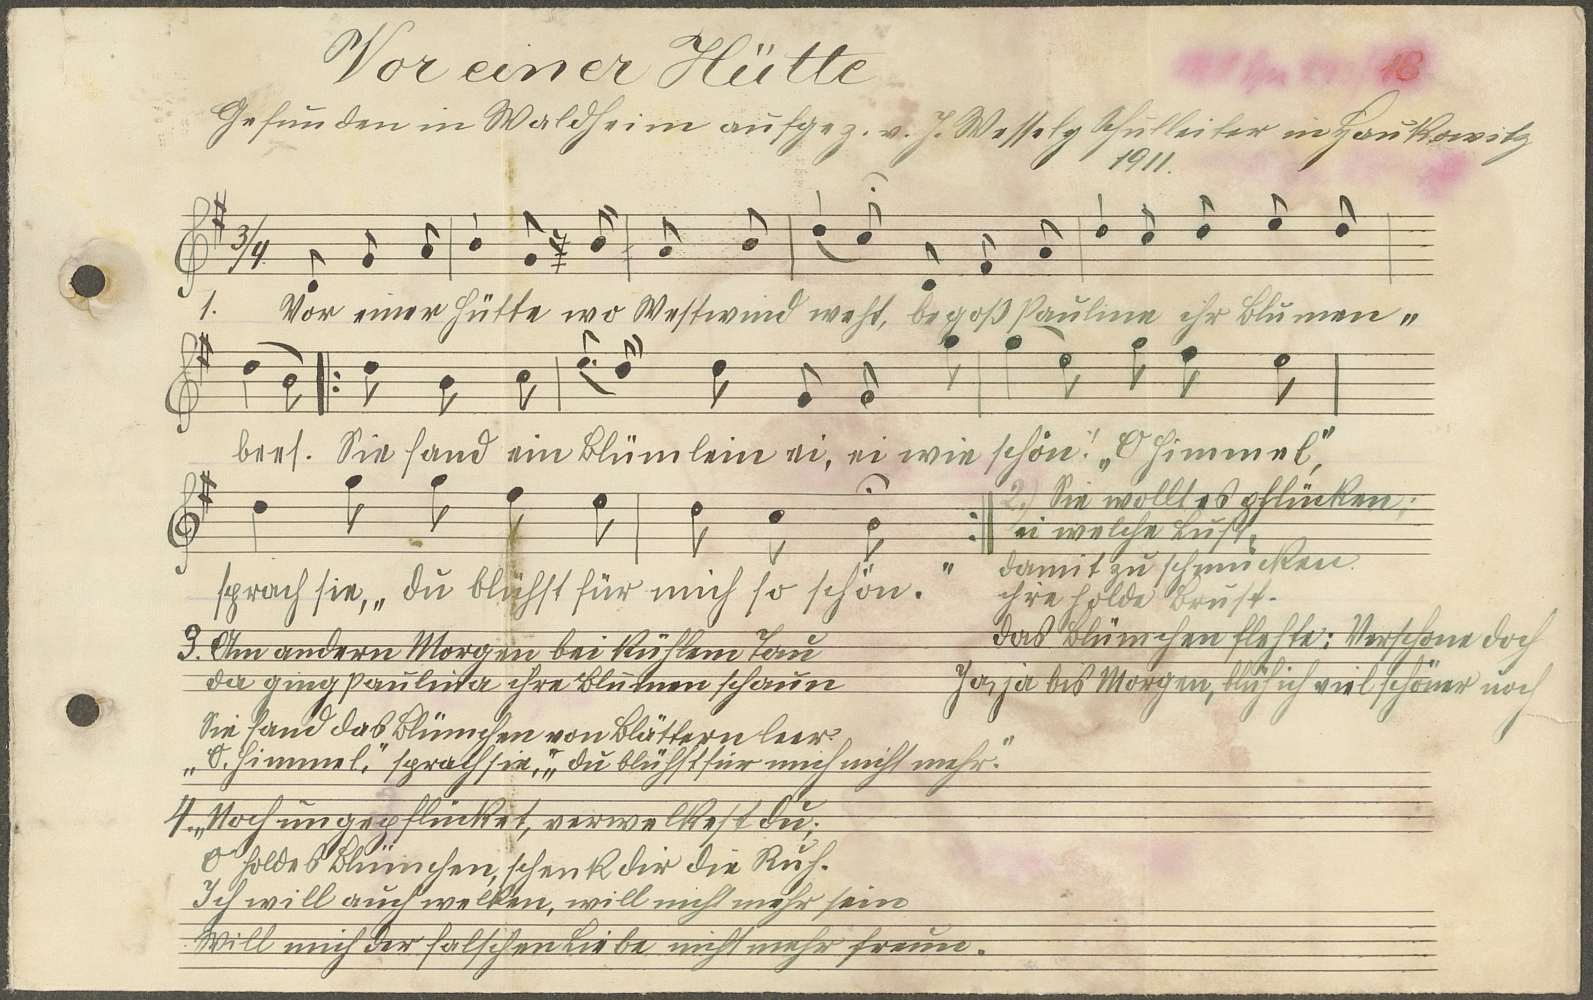 Vor einer Hütte
16
Gefunden in Waldheim aufgez. v. J. Wessely Schulleiter in Haukowitz
1911.
3/4
1. Vor einer Hütte wo Westwind weht, begoß Pauline ihr Blumen„
beet. Sie fand ein Blümlein ei, ei wie schön! „O Himmel,"
sprach sie, „du blühst für mich so schön."
2.) Sie wollt es pflücken;
ei welche Lust,
damit zu schmücken
ihre holde Brust.
das Blümchen flehte: Verschone doch
Ja, ja bis Morgen, blüh ich viel schöner noch
3. Am andern Morgen bei kühlem Tau
da ging Paulina ihre Blumen schaun
Sie fand das Blümchen von Blättern leer
„O, Himmel," sprach sie, „du blühst für mich nicht mehr."
4. „Noch ungepflücket, verwelkest du;
O holdes Blümchen, schenk dir die Ruh.
Ich will auch welken, will nicht mehr sein
Will mich der falschen Liebe nicht mehr freun.